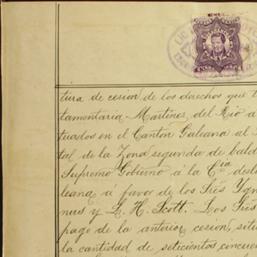 tura de cesion de los derechos que t
tamentaria Martinez del Rio a
tuados en el Canton Galeana al
tal de la Zona segunda de bald
Supremo Gobierno á la Cía desl
leana, á favor de los Srēs Ygn
nus y L. H. Scott. Los Srēs
pago de la anterior cesion, situ
la cantidad de setecientos cincue